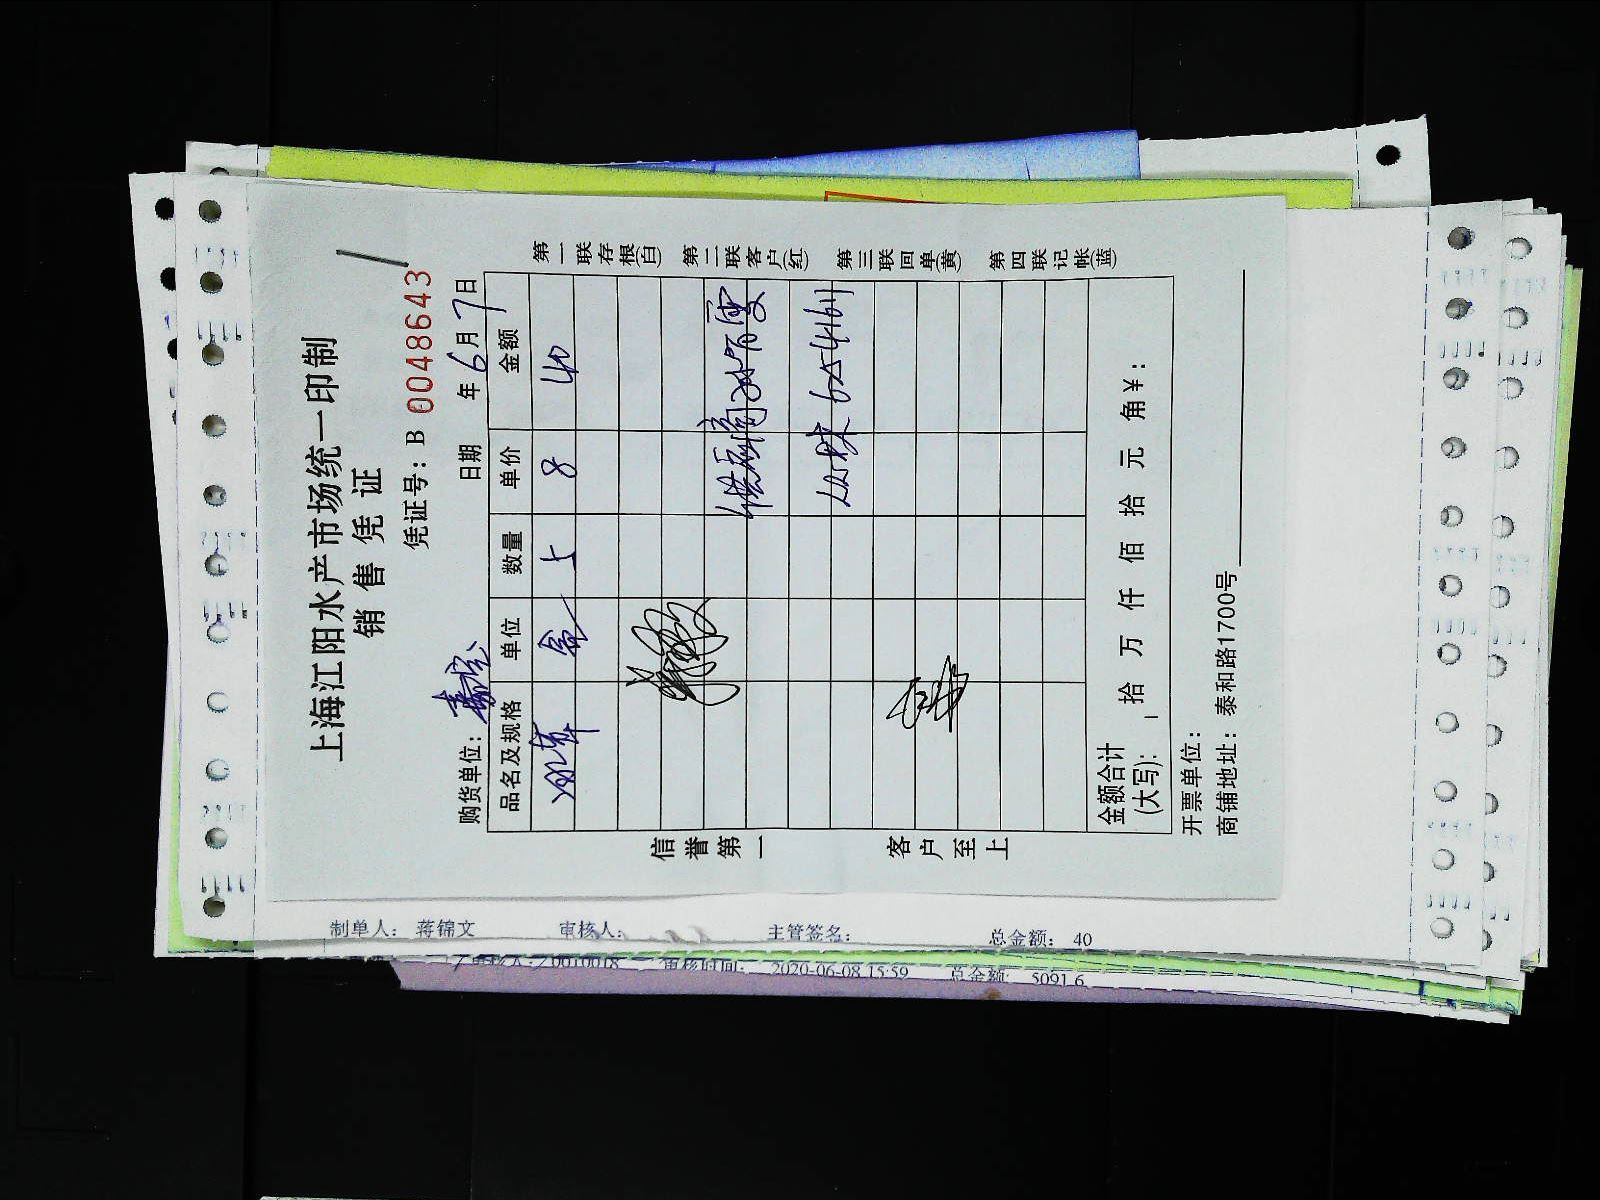 上海江阳水产市场统一印制
销售凭证
凭证号：B 0048643
购货单位：
日期 年 6 月 7 日
品名及规格 单位 数量 单价 金额
盒 5 8 40
6254161
金额合计(大写)： 拾 万 仟 佰 拾 元 角 ¥：
开票单位：
商铺地址：泰和路1700号
信誉第一 客户至上
第一联存根(白) 第二联客户(红) 第三联回单(黄) 第四联记帐(蓝)
制单人： 蒋锦文 审核人： 主管签名： 总金额： 40
审核时间： 2020-06-08 15:59 总金额： 5091.6